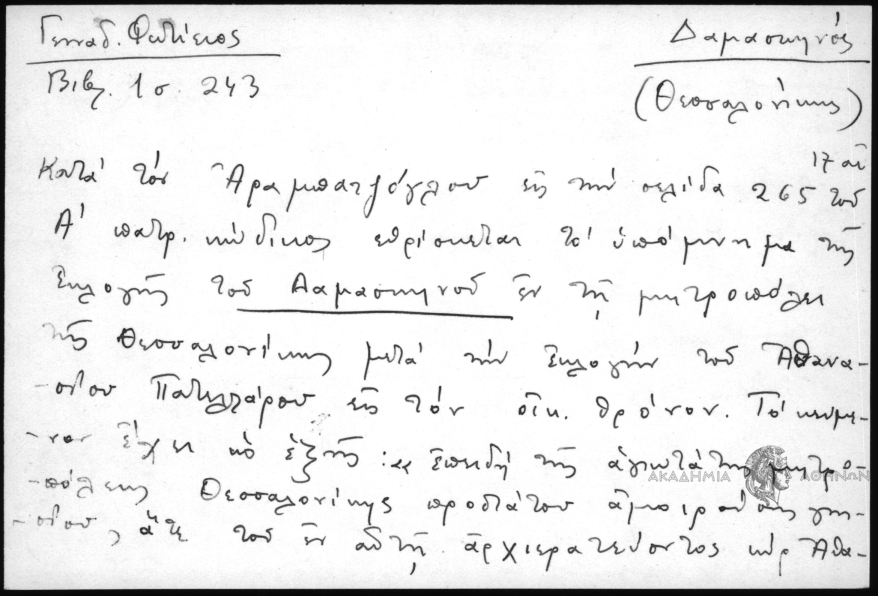 Γενναδ. Φωτίειος
Δαμασκηνός
Βιβλ. 1 σ. 243
(Θεσσαλονίκης)
17 αἰ
Κατά τόν Ἀραμπατζόγλου εἰς τήν σελίδα 265 τοῦ
Α' πατρ. κώδικος εὑρίσκεται τό ὑπόμνημα τῆς
ἐκλογῆς τοῦ Δαμασκηνοῦ ἐν τῇ μητροπόλει
τῆς Θεσσαλονίκης μετά τήν ἐκλογήν τοῦ Ἀθανα-
-σίου Πατελλάρου εἰς τόν οἰκ. θρόνον. Τό κείμε-
-νον ἔχει ὡς ἑξῆς: « Ἐπειδή τῆς ἁγιωτάτης μητρο-
-πόλεως Θεσσαλονίκης προστάτου ἀμοιρούσης γνη-
-σίου, ἅτε τοῦ ἐν αὐτῇ ἀρχιερατεύοντος κύρ Ἀθα-
ΑΚΑΔΗΜΙΑ ΑΘΗΝΩΝ